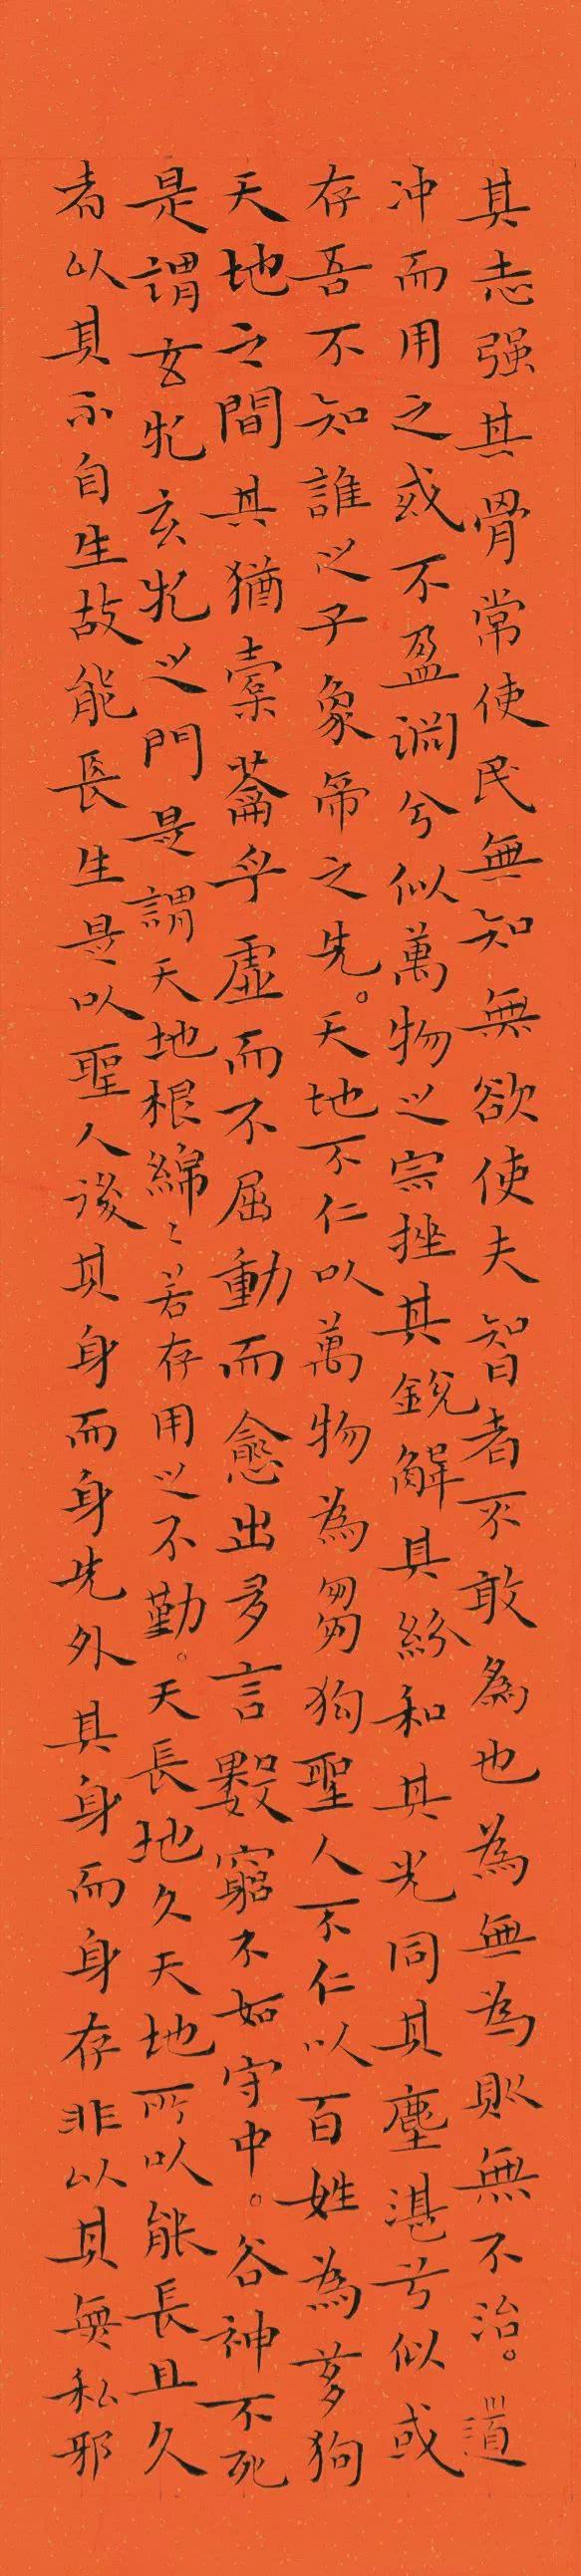 其志强其骨常使民無知無欲使夫智者不敢為也為無為則無不治。道
冲而用之或不盈淵兮似萬物之宗挫其銳解其紛和其光同其塵湛兮似或
存吾不知誰之子象帝之先。天地不仁以萬物為芻狗聖人不仁以百姓為芻狗
天地之間其猶橐籥乎虛而不屈動而愈出多言數窮不如守中。谷神不死
是謂玄牝玄牝之門是謂天地根綿〻若存用之不勤。天長地久天地所以能長且久
者以其不自生故能長生是以聖人後其身而身先外其身而身存非以其無私邪